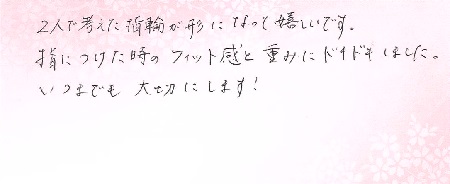 2人で考えた指輪が形になって嬉しいです。
指につけた時のフィット感と重みにドキドキしました。
いつまでも大切にします!